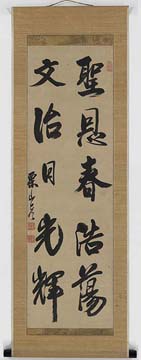 聖恩春浩蕩
文治日光輝